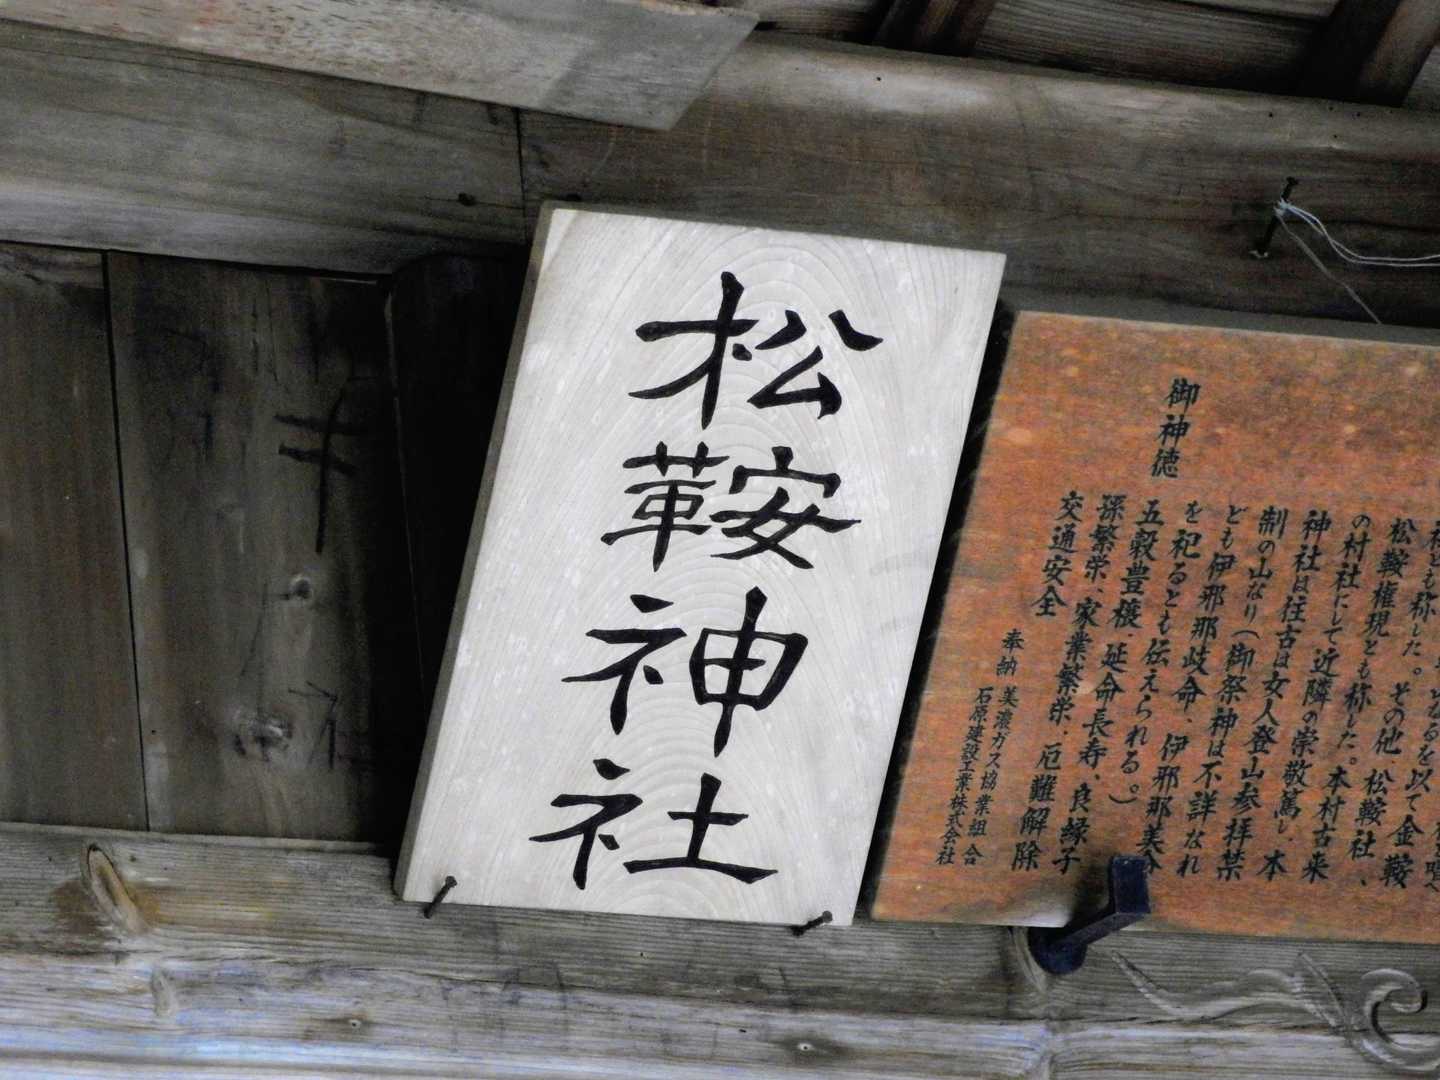 松鞍神社
を以て金鞍
松鞍権現とも称した。その他、松鞍社、
の村社にして近隣の崇敬篤し、本
神社は往古は女人登山参拝禁
制の山なり(御祭神は不詳なれ
ども伊邪那岐命、伊邪那美命
を祀るとも伝えられる。)
御神徳
五穀豊穣、延命長寿、良縁子
孫繁栄、家業繁栄、厄難解除
交通安全
奉納 美濃ガス協業組合
石原建設工業株式会社